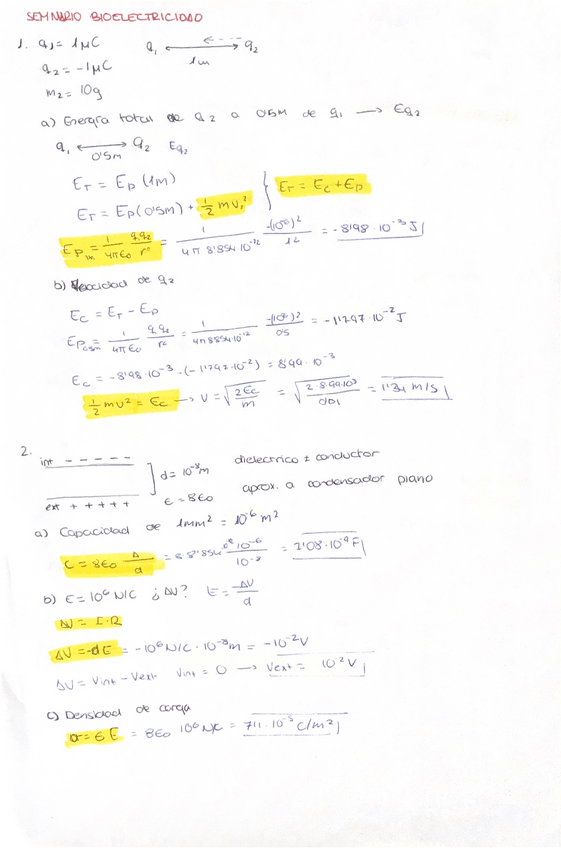 SEMINARIO BIOELECTRICIDAD
1. q1 = 1μC q1 ⟷ q2
1m
q2 = -1μC
m2 = 10g
a) Energía total de q2 a 0'5M de q1 → Eq2
q1 ⟷ q2 Eq2
0'5m
ET = Ep (1m)
ET = Ep(0'5m) + 1/2 m v² } ET = Ec + Ep
Ep 1m = 1/4πε0 q1q2/r² = 1/4π 8'854·10^-12 -(10^-6)²/1² = -8'98·10^-3 J
b) Velocidad de q2
Ec = ET - Ep
Ep 0'5m = 1/4πε0 q1q2/r² = 1/4π8'854·10^-12 -(10^-6)²/0'5 = -1'797·10^-2 J
Ec = -8'98·10^-3 - (-1'797·10^-2) = 8'99·10^-3
1/2 mv² = Ec → v = √2Ec/m = √2·8'99·10^-3/0'01 = 1'34 m/s
2.
int - - - - -
] d = 10^-8 m dieléctrico ≠ conductor
ε = 8ε0 aprox. a condensador plano
ext + + + + +
a) Capacidad de 1mm² = 10^-6 m²
C = 8ε0 A/d = 8·8'854·10^-12 10^-6/10^-8 = 7'08·10^-9 F
b) E = 10^6 N/C ¿ΔV? E = -ΔV/d
ΔV = I·R
ΔV = -dE = -10^6 N/C · 10^-8 m = -10^-2 V
ΔV = Vint - Vext Vint = 0 → Vext = 10^-2 V
c) Densidad de carga
σ = ε E = 8ε0 10^6 N/C = 7'11·10^-5 C/m²